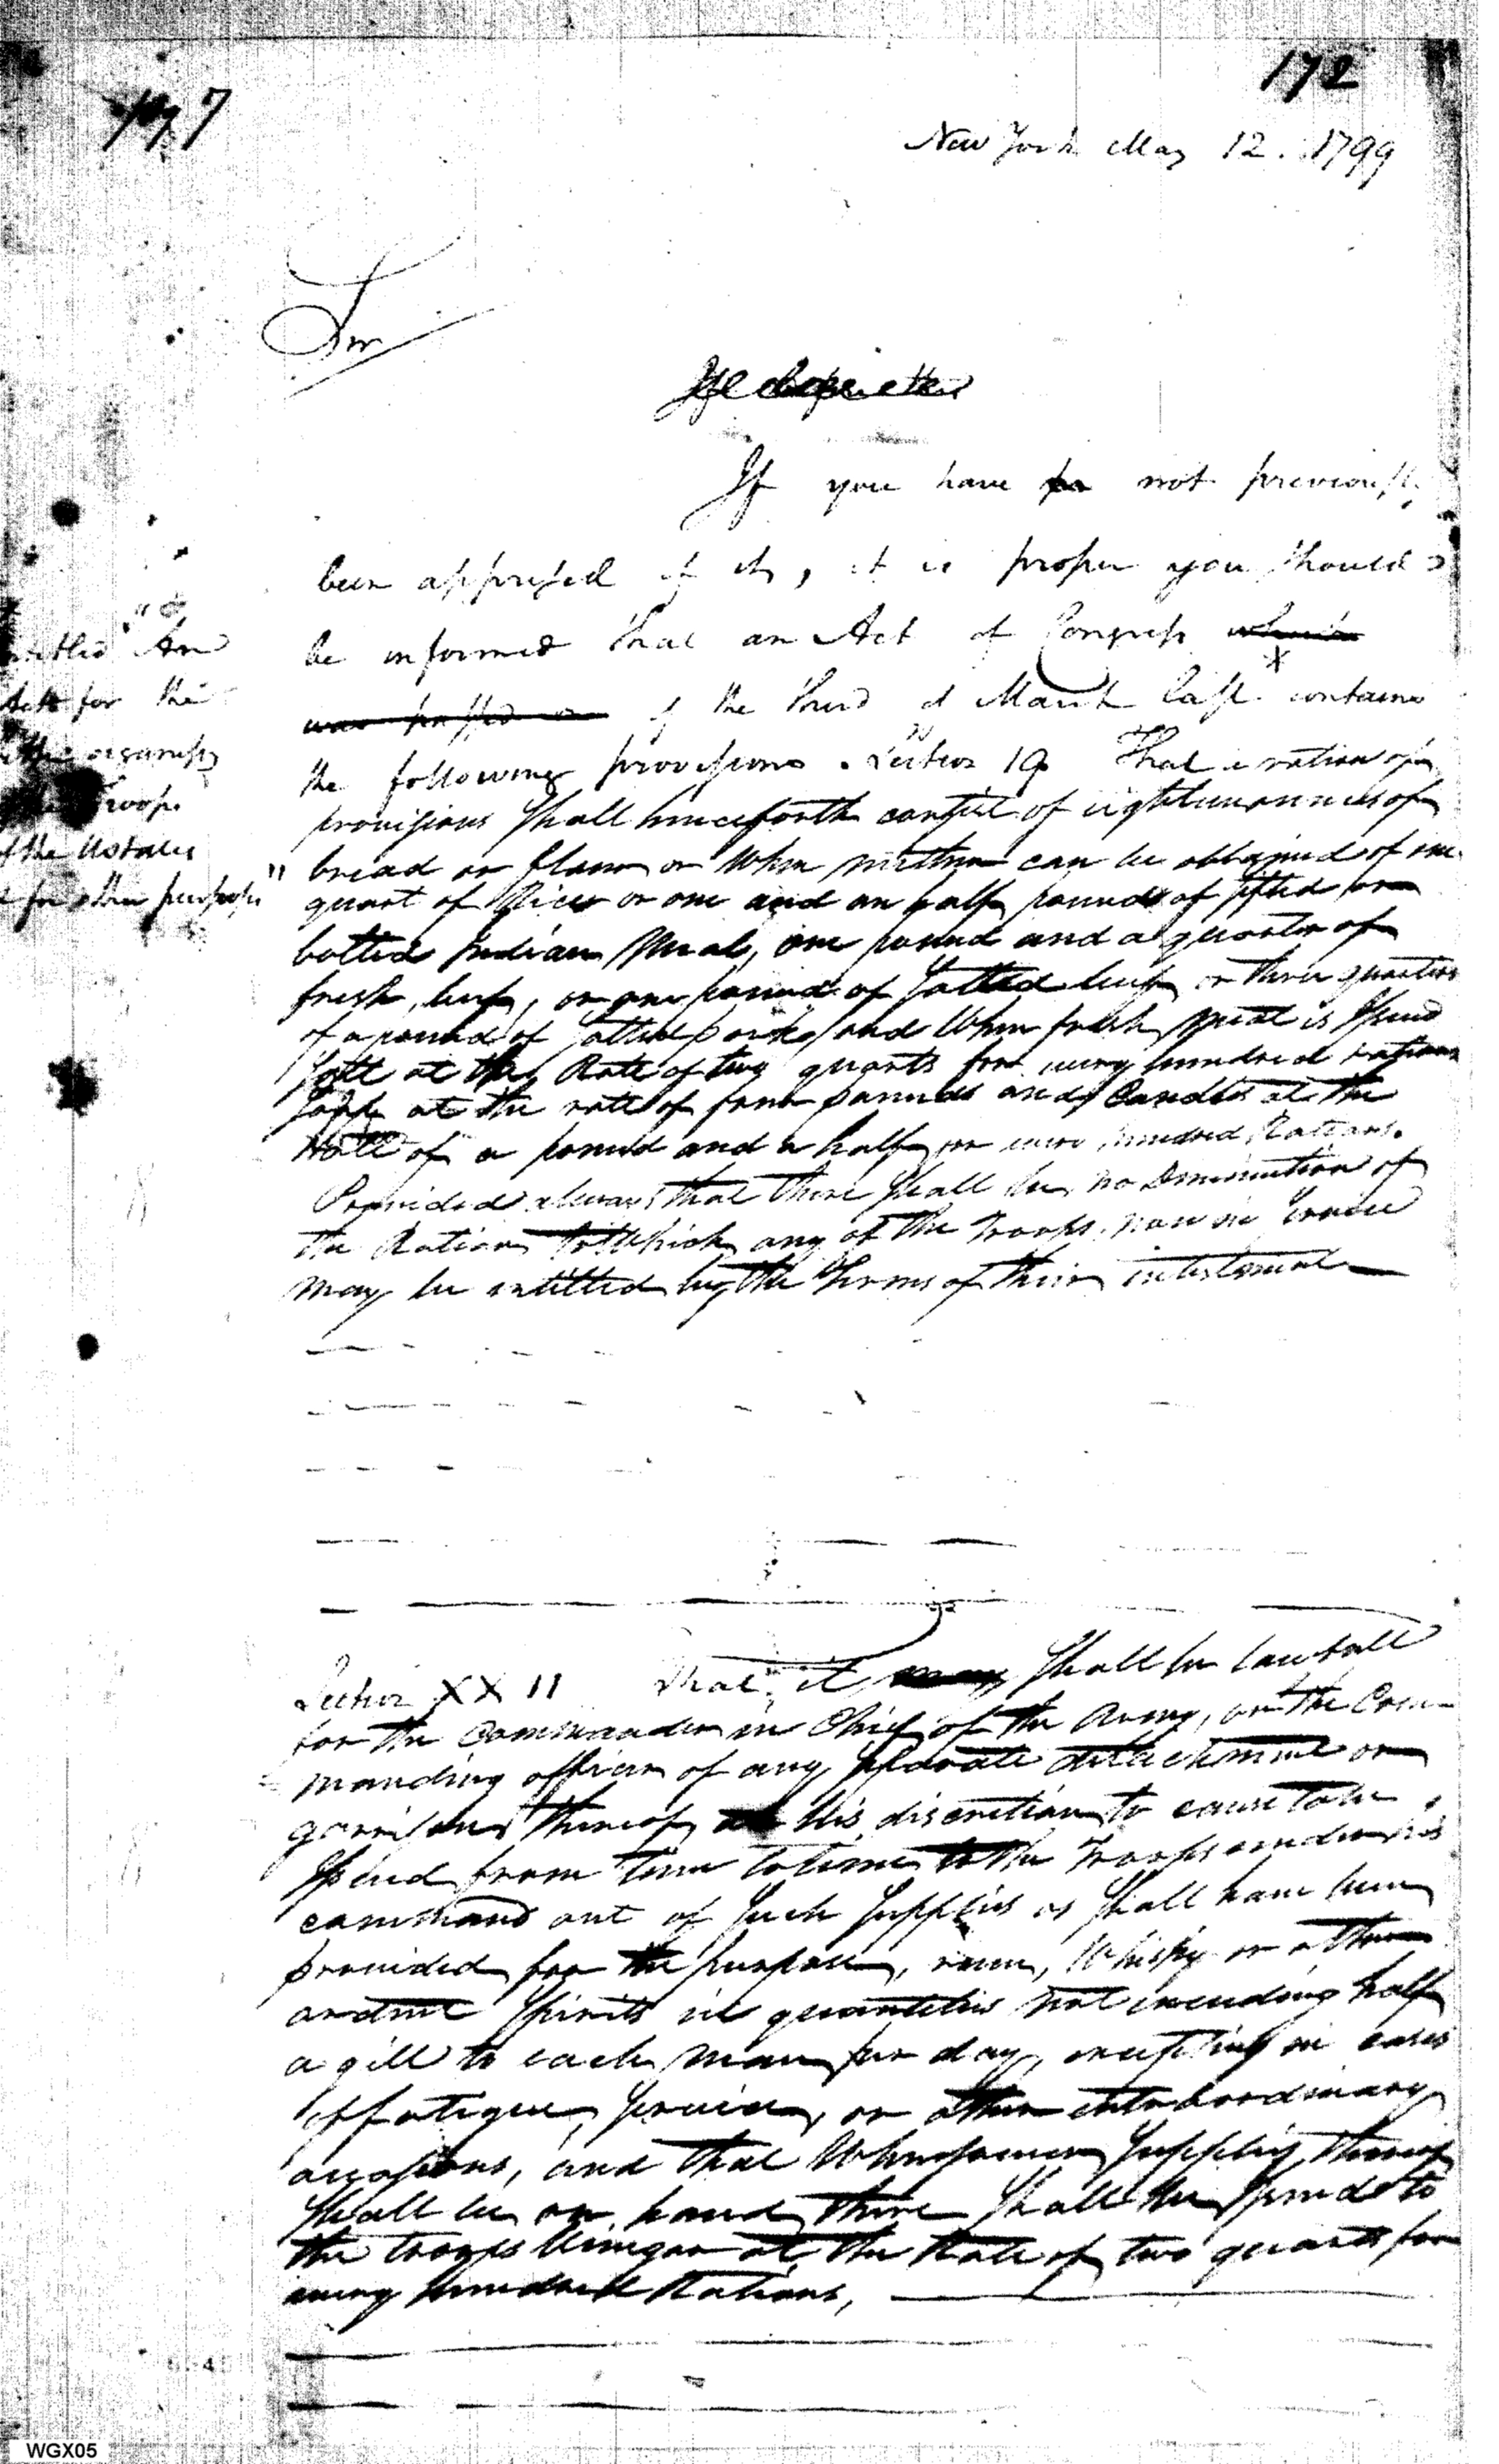 172
7
New York May 12. 1799
Sir
If you have not previously
been apprised of it, it is proper you should
be informed that an Act of Congress which
*
was passed on of the third of March last contains
the following provisions. Section 19 "That a ration of
provisions shall henceforth consist of eighteen ounces of
bread or flour or when neither can be obtained of one
quart of Rice or one and an half pounds of sifted or
bolted Indian Meal, one pound and a quarter of
fresh beef, or one pound of salted beef or three quarters
of a pound of salted pork, and when fresh meat is issued
salt at the Rate of two quarts for every hundred rations
soap at the rate of four pounds and Candles at the
Rate of a pound and a half for every hundred Rations.
Provided always that there shall be no Diminution of
the Ration to which any of the Troops now in service
may be entitled by the Terms of their inlistment
"&
An
for the
organising
Troops
of the United
& for other purposes"
Section XXII That it may shall be lawfull
for the Commander in Chief of the Army, or the Com-
manding officer of any separate detachment or
garrison thereof at his discretion to cause to be
issued from time to time to the Troops under his
command out of such supplies as shall have been
provided for the purpose, rum, Whisky or other
ardent spirits in quantities not exceeding half
a gill to each man per day, excepting in cases
of fatigue, service, or other extraordinary
occasions, and that Whensoever supplies thereof
shall be on hand there shall be issued to
the troops Vinegar at the Rate of two quarts for
every hundred Rations,
WGX05